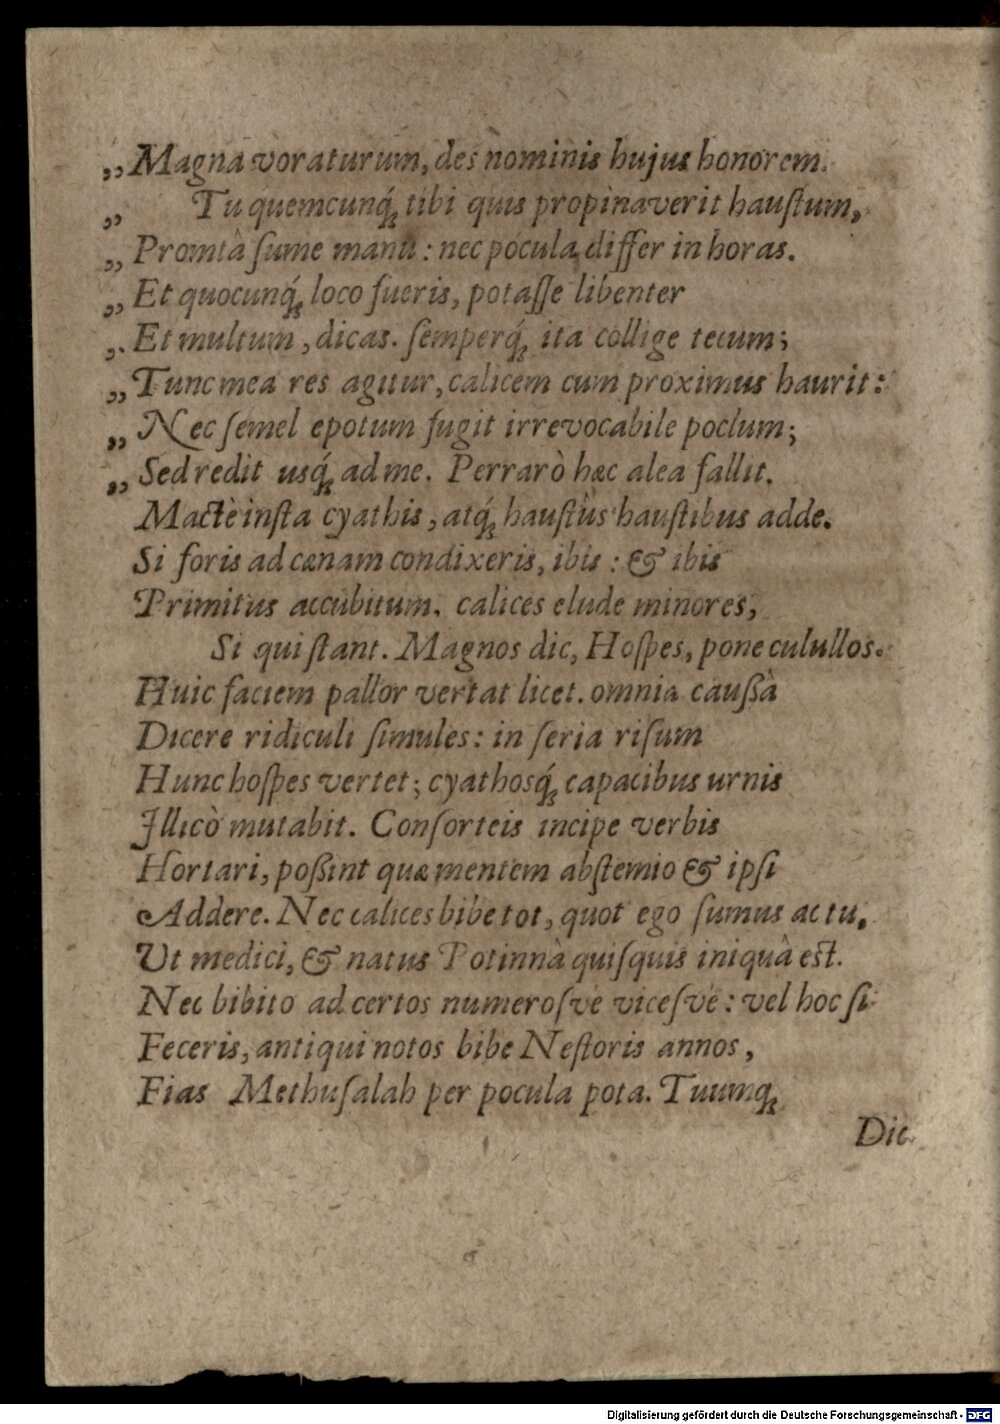 „Magna voraturum, des nominis hujus honorem.
„ Tu quemcunq́; tibi quis propinaverit hauſtum,
„ Promtâ ſume manu: nec pocula differ in horas.
„ Et quocunq́; loco fueris, potaſſe libenter
„ Et multum, dicas. ſemperq́; ita collige tecum;
„ Tunc mea res agitur, calicem cum proximus haurit:
„ Nec ſemel epotum fugit irrevocabile poclum;
„ Sed redit usq́; ad me. Perrarò hæc alea fallit.
Mactè inſta cyathis, atq́; hauſtùs hauſtibus adde.
Si foris ad cænam condixeris, ibis: & ibis
Primitus accubitum. calices elude minores,
Si qui ſtant. Magnos dic, Hoſpes, pone culullos.
Huic faciem pallor vertat licet. omnia cauſſà
Dicere ridiculi ſimules: in ſeria riſum
Hunc hoſpes vertet; cyathosq́; capacibus urnis
Illicò mutabit. Conſorteis incipe verbis
Hortari, poſſint quæ mentem abſtemio & ipſi
Addere. Nec calices bibe tot, quot ego ſumus ac tu,
Ut medici, & natus Potinnâ quiſquis iniquâ eſt.
Nec bibito ad certos numeroſve viceſve: vel hoc ſi
Feceris, antiqui notos bibe Neſtoris annos,
Fias Methuſalah per pocula pota. Tuumq;
Dic
Digitalisierung gefördert durch die Deutsche Forschungsgemeinschaft - DFG